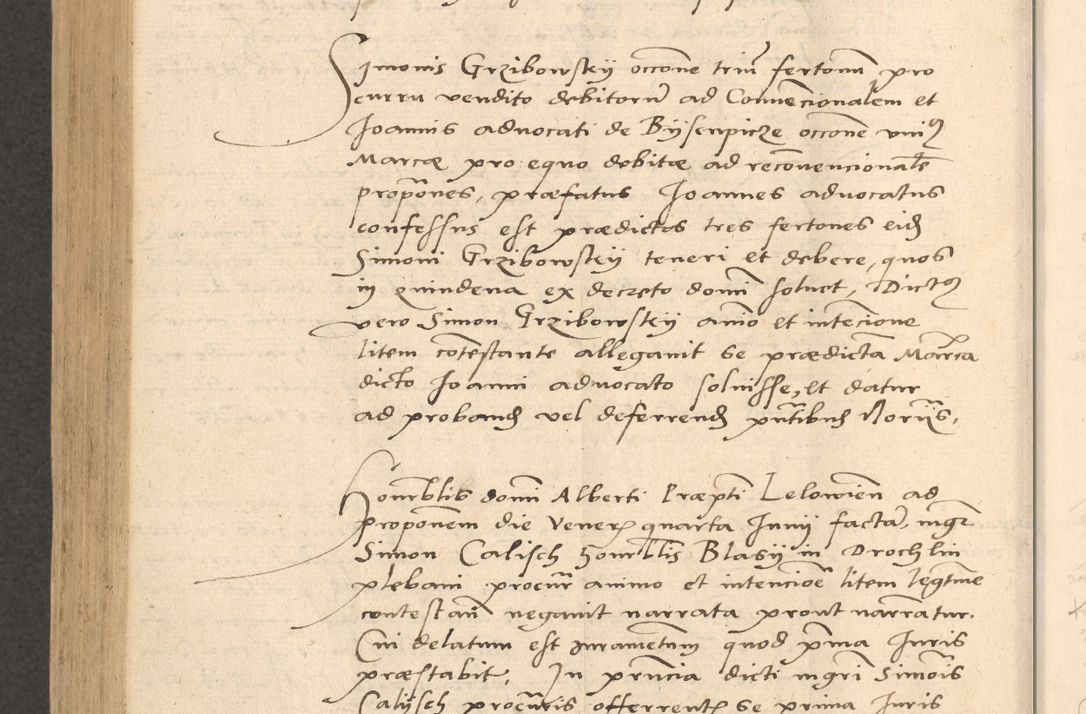 Simonis Grzibowskÿ occōne triū fertonū pro
curru vendito debitorū ad Convēcionalem et
Joannis advocati de Bÿsenpicze occōne vniꝰ
Marcæ pro equo debitæ ad recōvencionalē
propōnes, præfatus Joannes advocatus
confessus est prædictos tres fertones eidē
Simoni Grzibowskÿ teneri et debere, quos
in quindena ex decreto domī solvet, Dictꝰ
vero Simon Grzibowskÿ aīo et intēcione
litem cōtestante allegavit se prædictā Marcā
dicto Joanni advocato solvisse, et datur
ad proband vel deferrend pn̄tibus Noriÿs.
Honorblis domī Alberti Præpti Lelovien ad
proponem die Venerꝭ quarta Junÿ factā, mgr
Simon Calisch honorblis Blasÿ in Drochlin
plebani procur animo et intencioē litem legitime
contestan negavit narrata prout narratur.
Cui delatum est juramētum quod prma Juris
præstabit, In prn̄cia dicti mgri Simōis
Calÿsch procuris offerrentꝭ se prima Juris